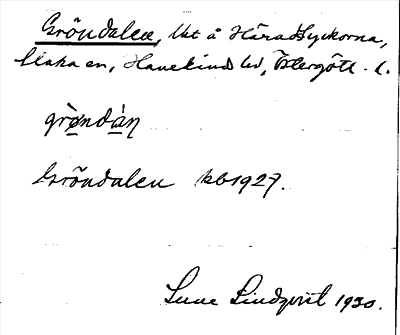 Gröndalen, lht å Häradslyckorna,
Slaka sn, Hanekinds hd, Östergötl. l.
grøndàn
Gröndalen kb 1927.
Sune Lindqvist 1930.